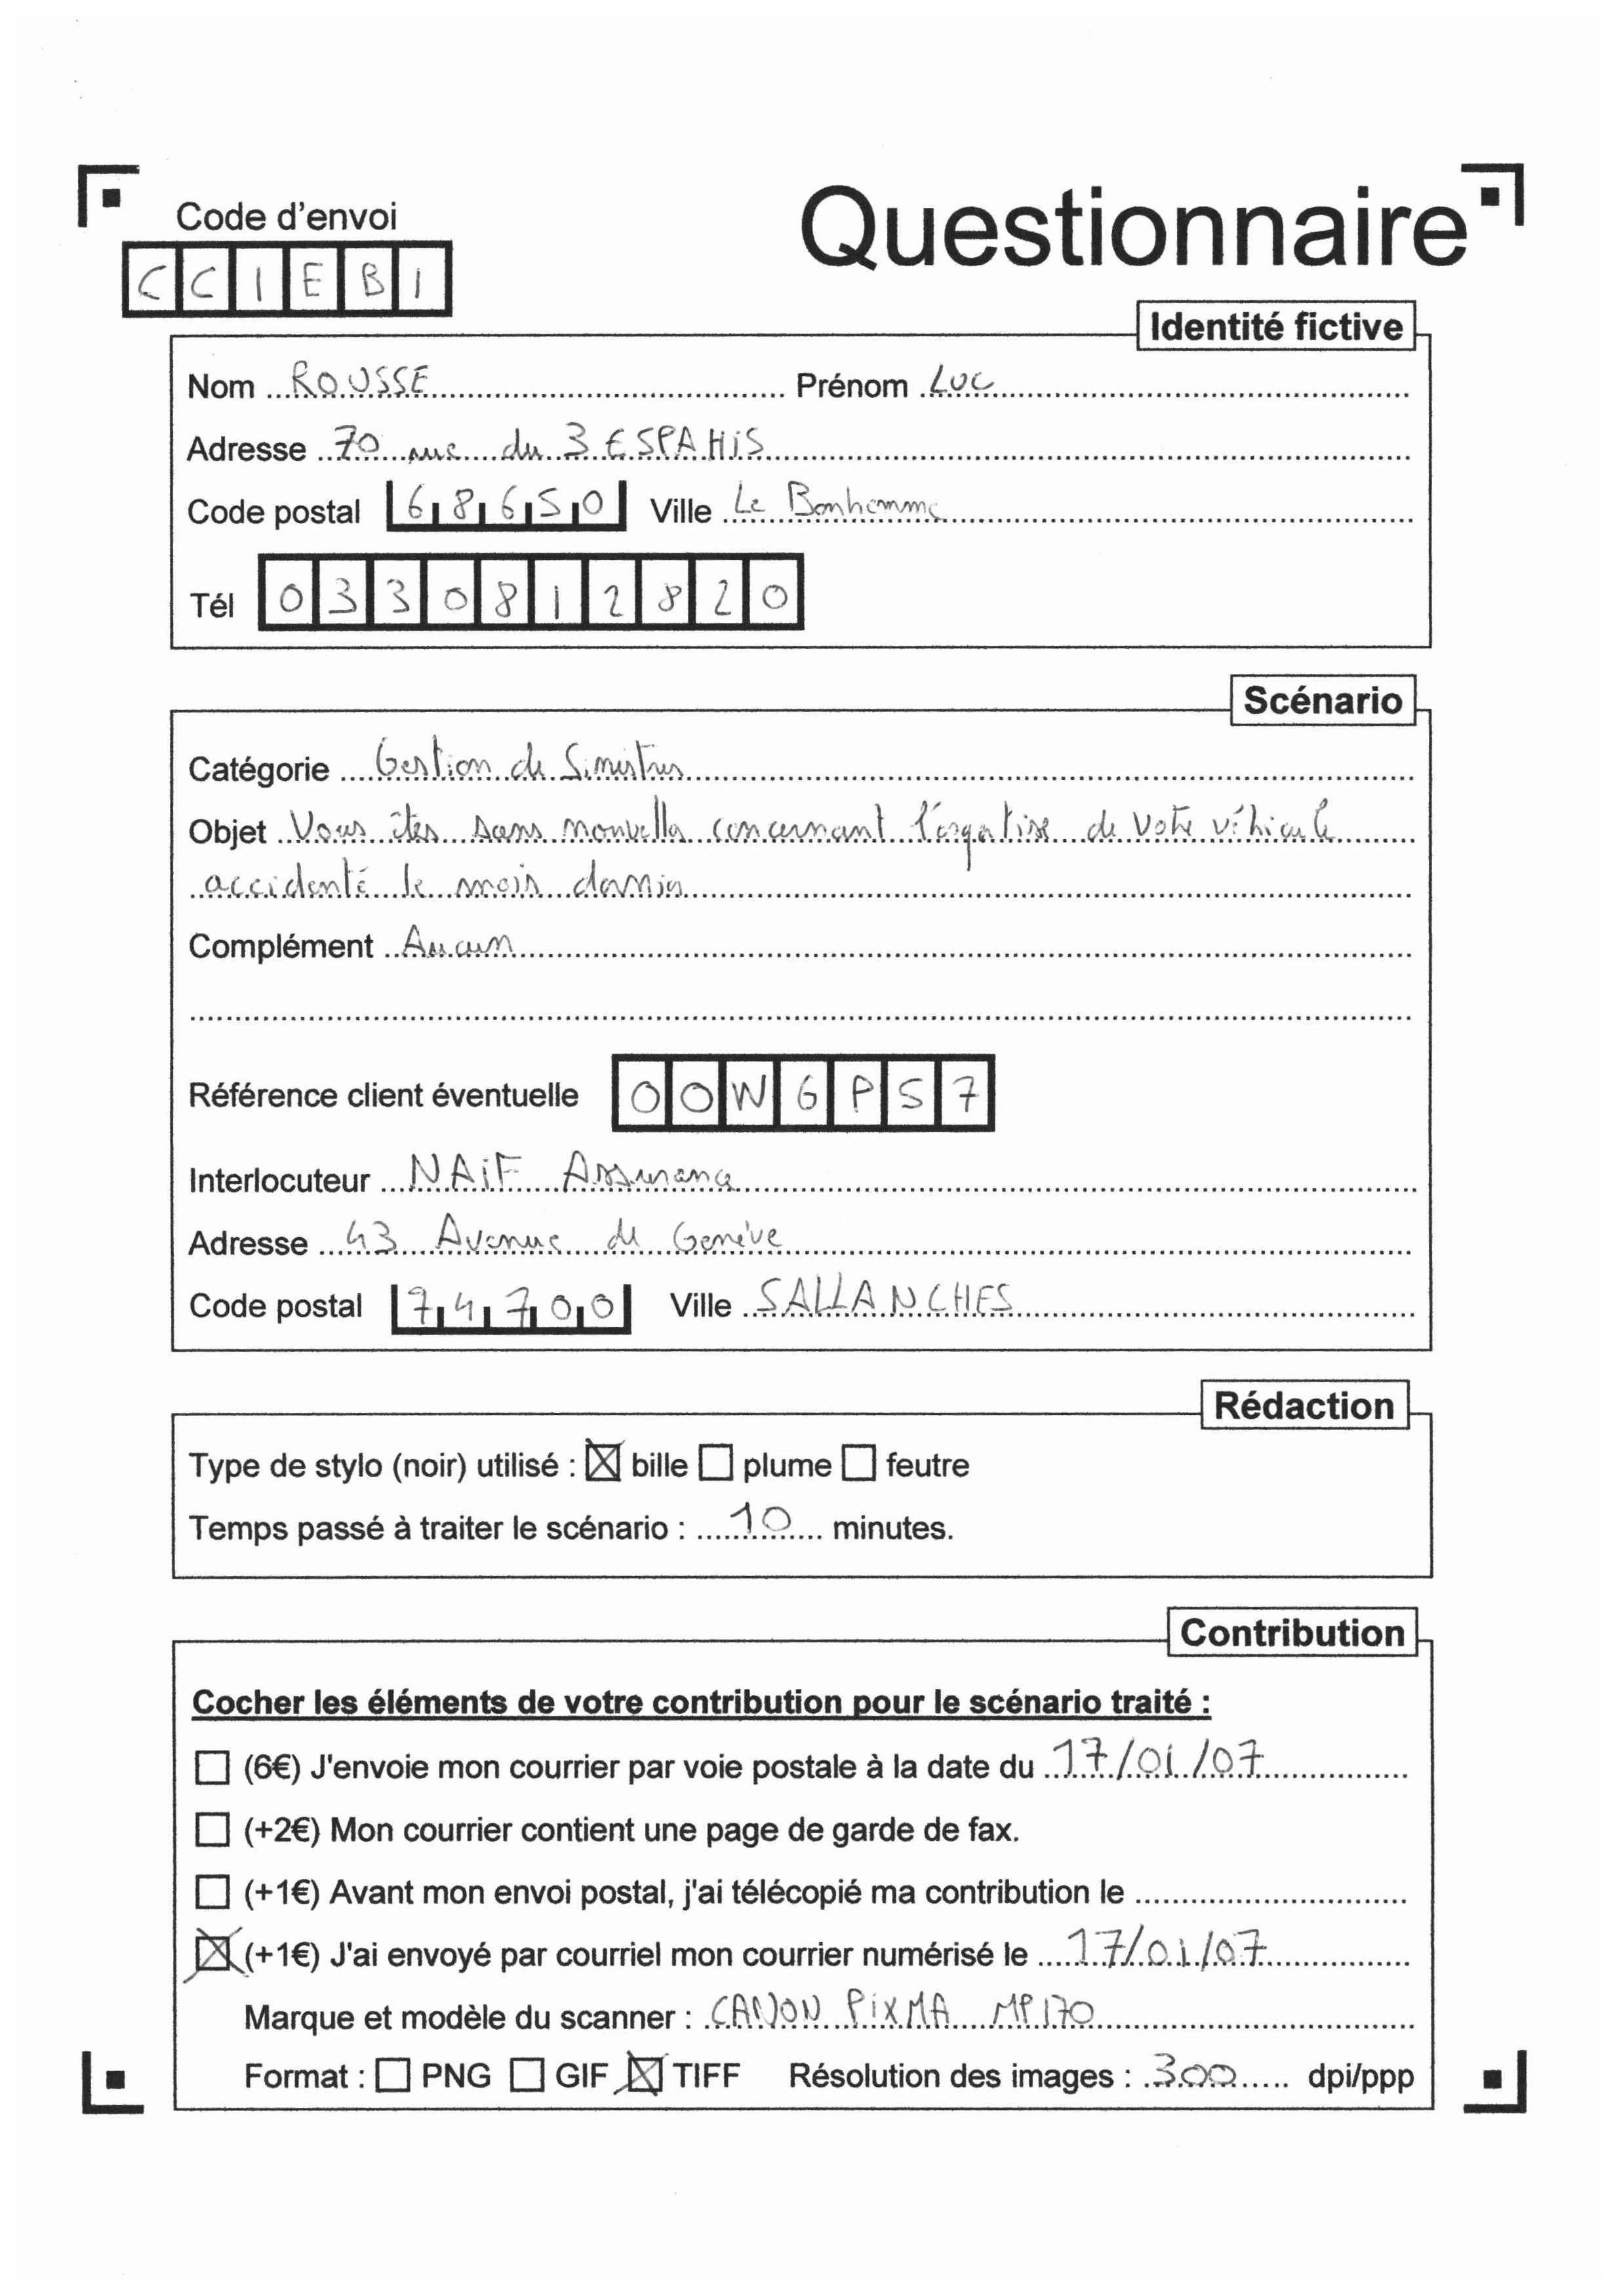 Code d'envoi
Questionnaire
CCIEBI
Identité fictive
Nom ROUSSE Prénom Luc
Adresse 70 rue du 3 E SPAHIS
Code postal 68650 Ville Le Bonhomme
Tél 0330812820
Scénario
Catégorie Gestion de Sinistres
Objet Vous êtes sans nouvelles concernant l'expertise de votre véhicule
accidenté le mois dernier
Complément Aucun
Référence client éventuelle 00WGPS7
Interlocuteur NAiF Assurance
Adresse 43 Avenue de Genève
Code postal 74700 Ville SALLANCHES
Rédaction
Type de stylo (noir) utilisé : ☒ bille ☐ plume ☐ feutre
Temps passé à traiter le scénario : 10 minutes.
Contribution
Cocher les éléments de votre contribution pour le scénario traité :
☐ (6€) J'envoie mon courrier par voie postale à la date du 17/01/07
☐ (+2€) Mon courrier contient une page de garde de fax.
☐ (+1€) Avant mon envoi postal, j'ai télécopié ma contribution le
☒ (+1€) J'ai envoyé par courriel mon courrier numérisé le 17/01/07
Marque et modèle du scanner : CANON PiXMA MP170
Format : ☐ PNG ☐ GIF ☒ TIFF Résolution des images : 300 dpi/ppp